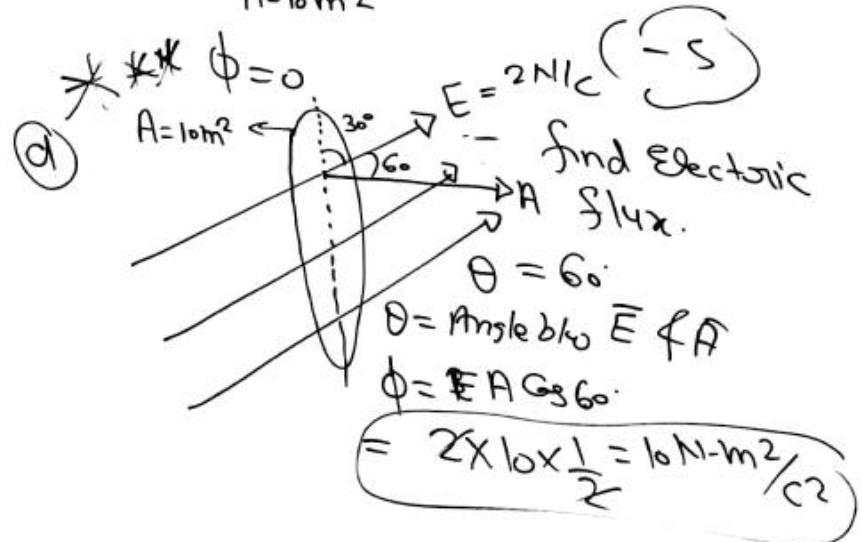 A=10m2
*** ϕ=0
E = 2N/C (-5)
A=10m² 30°
(d) 60
find Electoric
A flux.
θ = 60°
θ = Angle b/w E̅ & A̅
ϕ = EA Cos60°
= 2×10×1/2 = 10N-m²/c2